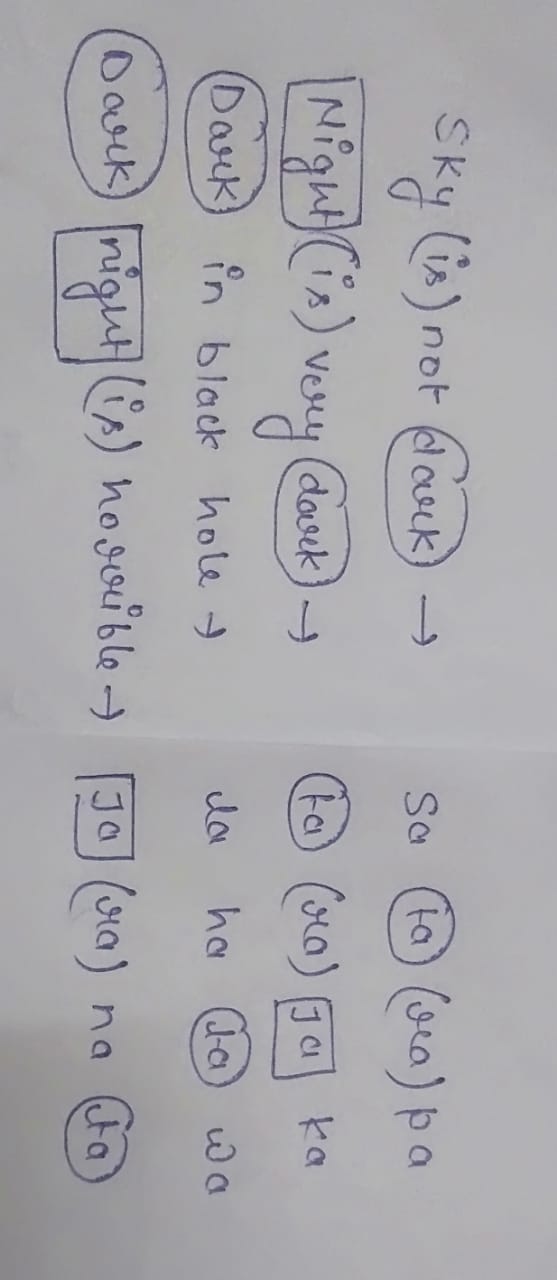 Sky (is) not dark → Sa ta (ra) pa
Night (is) very dark → ta (ra) Ja ka
Dark in black hole → da ha ta wa
Dark night (is) horrible → Ja (ra) na ta